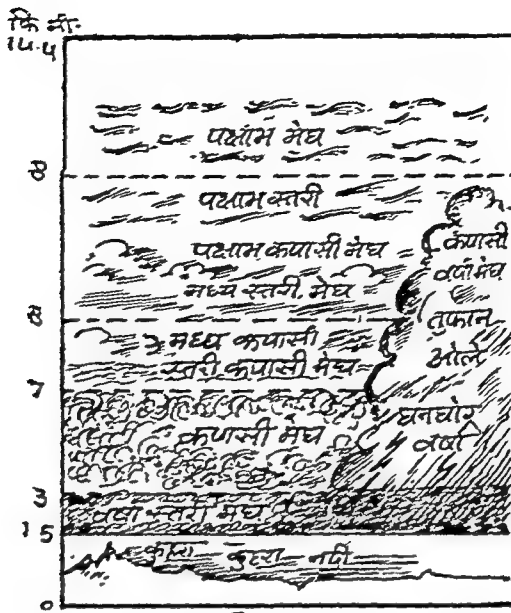 कि मी.
१५.५
पक्षाभ मेघ
पक्षाभ स्तरी
पक्षाभ कपासी मेघ
मध्य स्तरी मेघ
मध्य कपासी
स्तरी कपासी मेघ
कपासी मेघ
वर्षा स्तरी मेघ
कुहरा कुहरा नदी
कपासी
वर्षा मेघ
तुफान
ओले
घनघोर
वर्षा
7
3
1 5
0